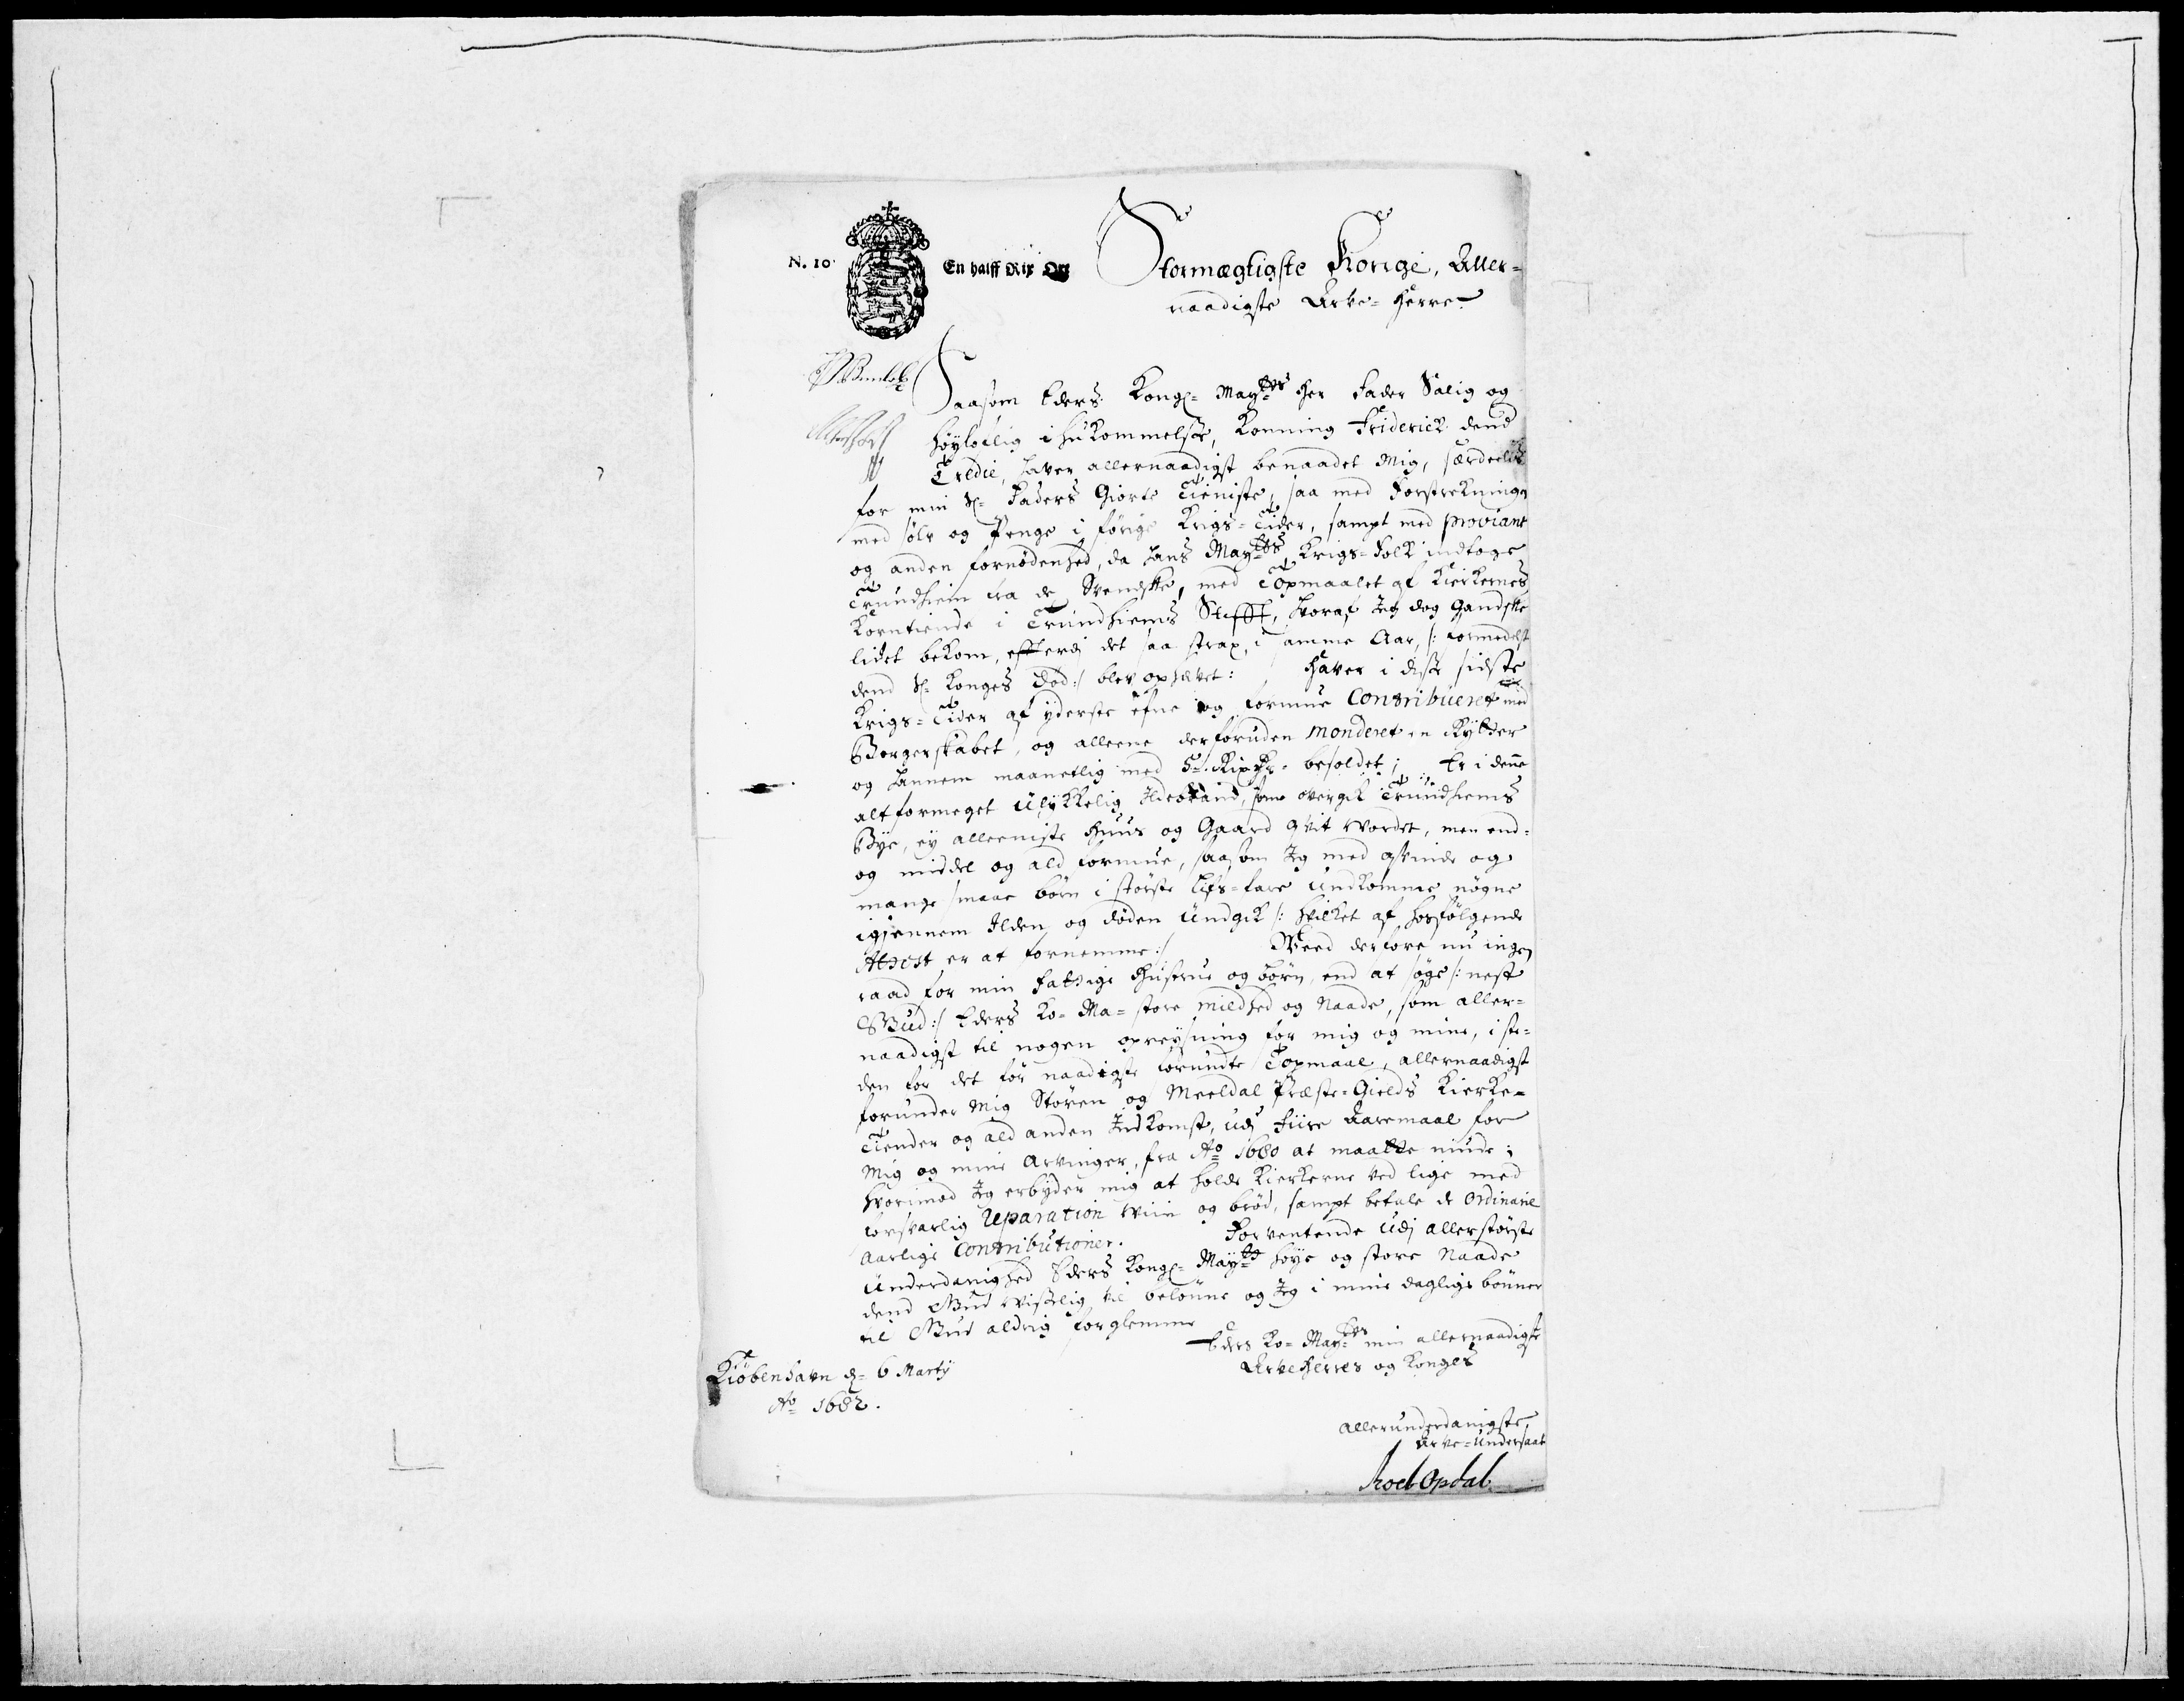 N. 10. En halff Rix Ort
Stormægtigste Konge, Aller-
naadigste Arve-Herre
Saasom Eders Kongl: Maytts Her Fader Salig og
høyloflig ihukommelse, Konning Friderick dend
Tredie, haver allernaadigst benaadet Mig, særdeelis
for min Sl: Faders Giorte Tieniste, saa med Forstrekning
med sølv og Penge i förige Krigs-Tider, sampt med proviant
og anden fornødenhed, da hans Maytts Krigs-Folk indtoge
Trundhiem fra de Svendske, med Topmaalet af Kierkernes
Korntiende i Trundhiems Stifft, hvoraf Jeg dog Gandske
lidet bekom, efterdj det saa strax, i samme Aar, /: formedelst
dend Sl: Konges Død :/ blev ophævet: Haver i disse sidste
Krigs-Tider af yderste efne og formue Contribueret med
Borgerskabet, og alleene derforuden monderet en Rytter
og hannem maanetlig med 5 Rixdr. besoldet; Er i denne
alt formeget Ulykkelig Ildebrand, som overgik Trundhiems
Bye, ey alleeniste Huus og Gaard qvit vordet, men end-
og middel og ald formue, saasom Jeg med qvinde og
mange smaae börn i störste Lifs-fare Undkomme nögne
igiennem Ilden og döden Undgik /: hvilket af hosfölgende
Attest er at fornemme :/ Weed derfore nu ingen
raad for min Fattige Hustrue og börn, end at søge /: nest
Gud :/ Eders Ko: Ma: store mildhed og Naade, som aller-
naadigst til nogen opreysning for mig og mine, i ste-
den for det för naadigste forundte Topmaal, allernaadigst
forunder Mig Stören og Meeldal Præste-Gields Kierke-
Tiender og ald anden Indkomst, udj Fiire Aaremaal for
Mig og mine Arvinger, fra Ao 1680 at maatte niude;
hvorimod Jeg erbyder mig at holde Kierkerne ved lige med
forsvarlig Reparation Wiin og bröd, sampt betale de Ordinarie
Aarlige Contributioner. Forventende Udj allerstörste
Underdanighed Eders Kongl: Maytts höye og store Naade
dend Gud visselig vil belönne og Jeg i mine daglige bönner
til Gud aldrig forglemme
Eders Ko: Maytts min allernaadigste
Arve Herres og Konges
Kiöbenhavn d: 6 Martij
Ao 1682.
allerunderdanigste
Arve-Undersaat
Opdal